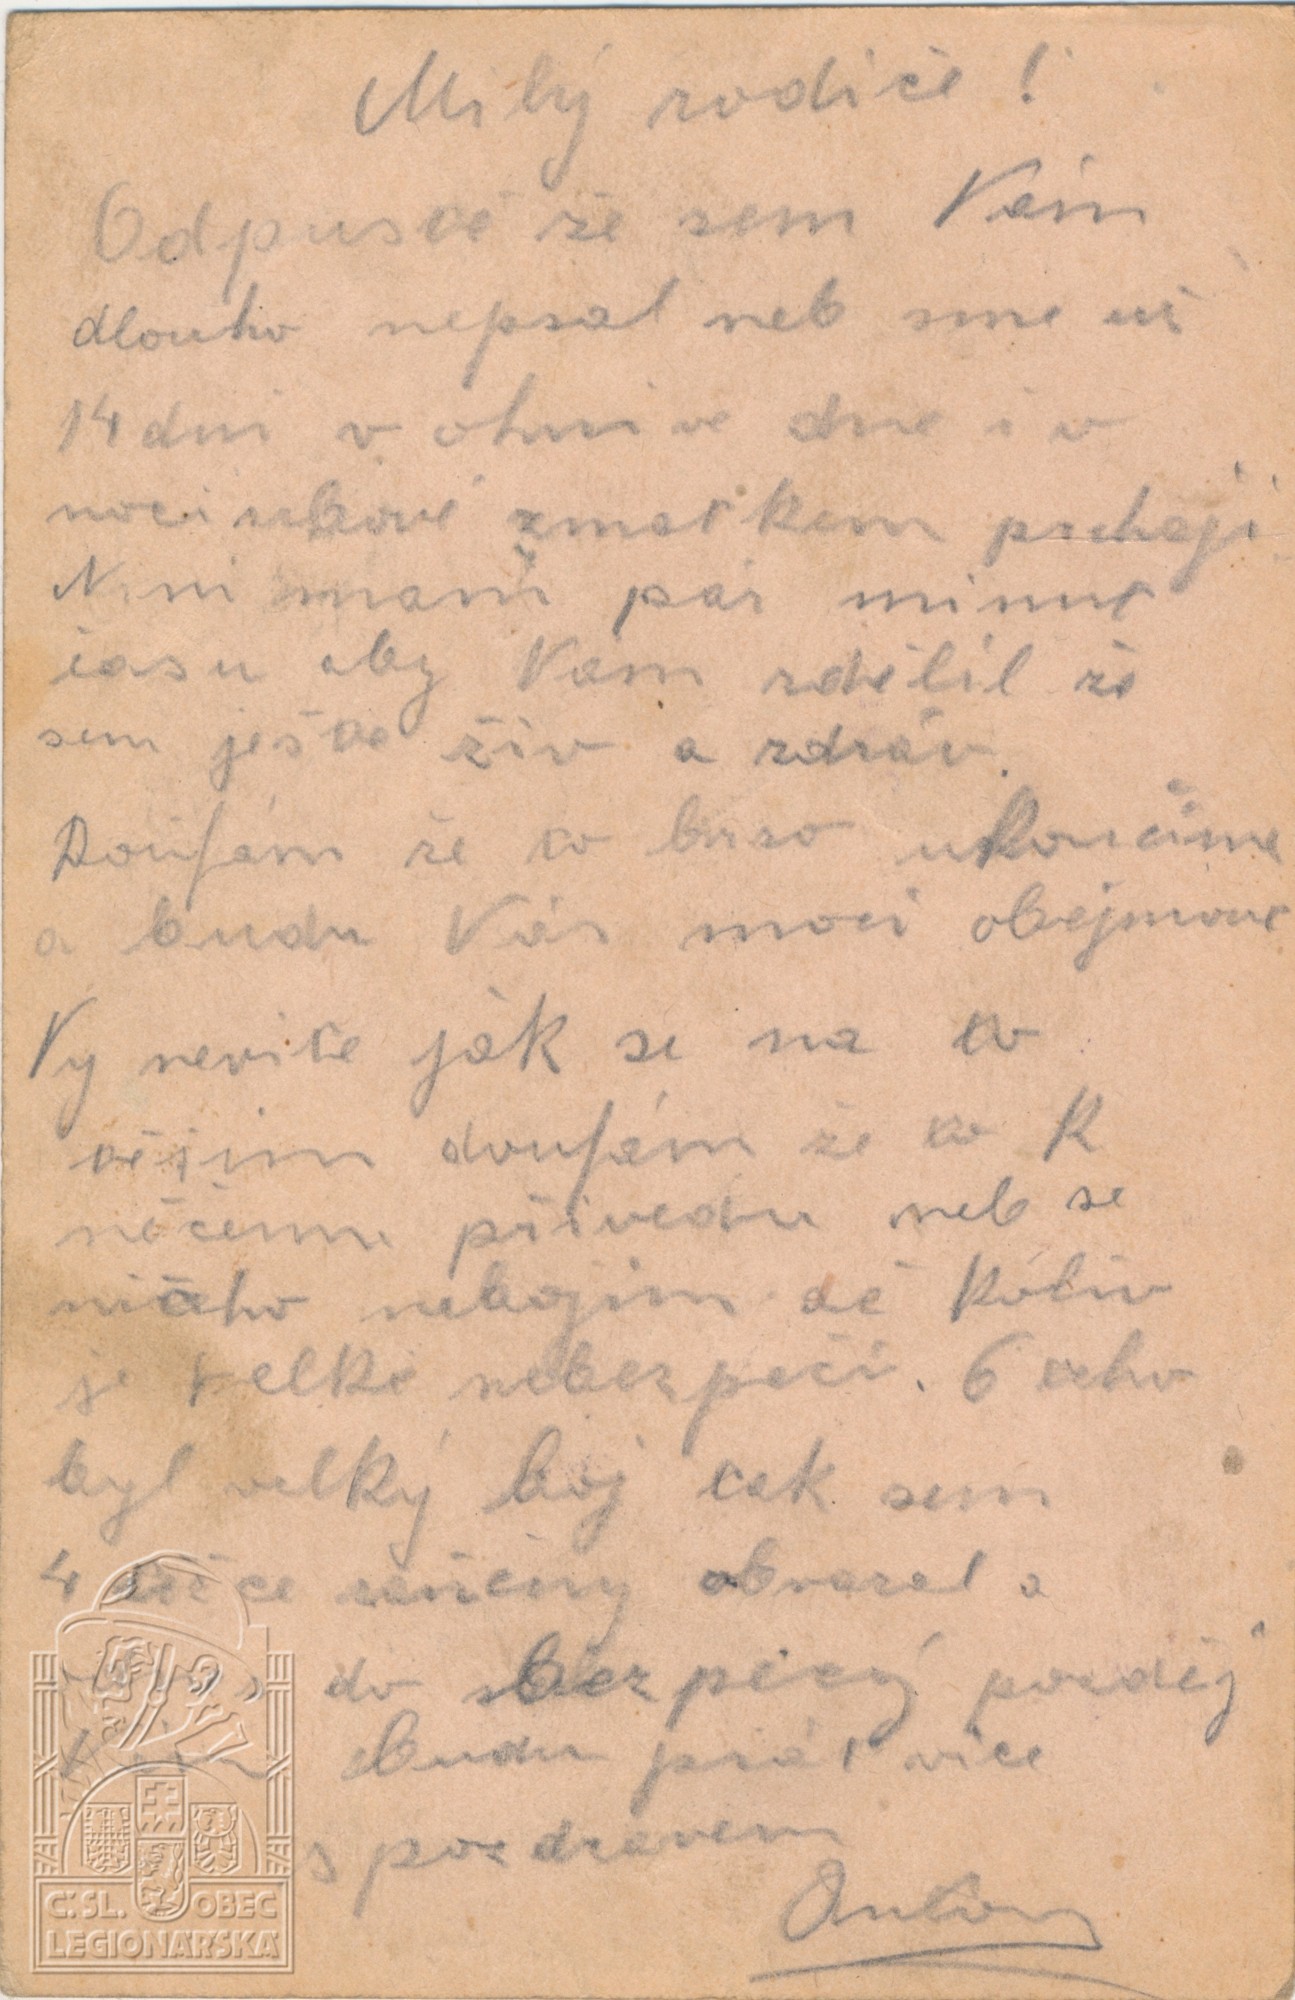 Milý rodiče!
Odpusťe že sem Vám
dlouho nepsal neb sme už
14 dni v ohni ve dne i v
noci zmatkem
Nini mam pár minut
času aby Vám zdělil že
sem ješte živ a zdráv.
Doufám že to brzo ukončíme
a budu Vás moci obejmout
Vy nevite jak se na to
těším doufám že to k
něčemu přivedu neb se
ničeho nebojim ač koliv
je velké nebezpeči. 6 teho
byl velký boj tak sem
4 těžce raněny obvazal a
do bezpečý pozděj
Vám budu psát více
s pozdravem
Anton
Č.SL. OBEC
LEGIONÁŘSKÁ